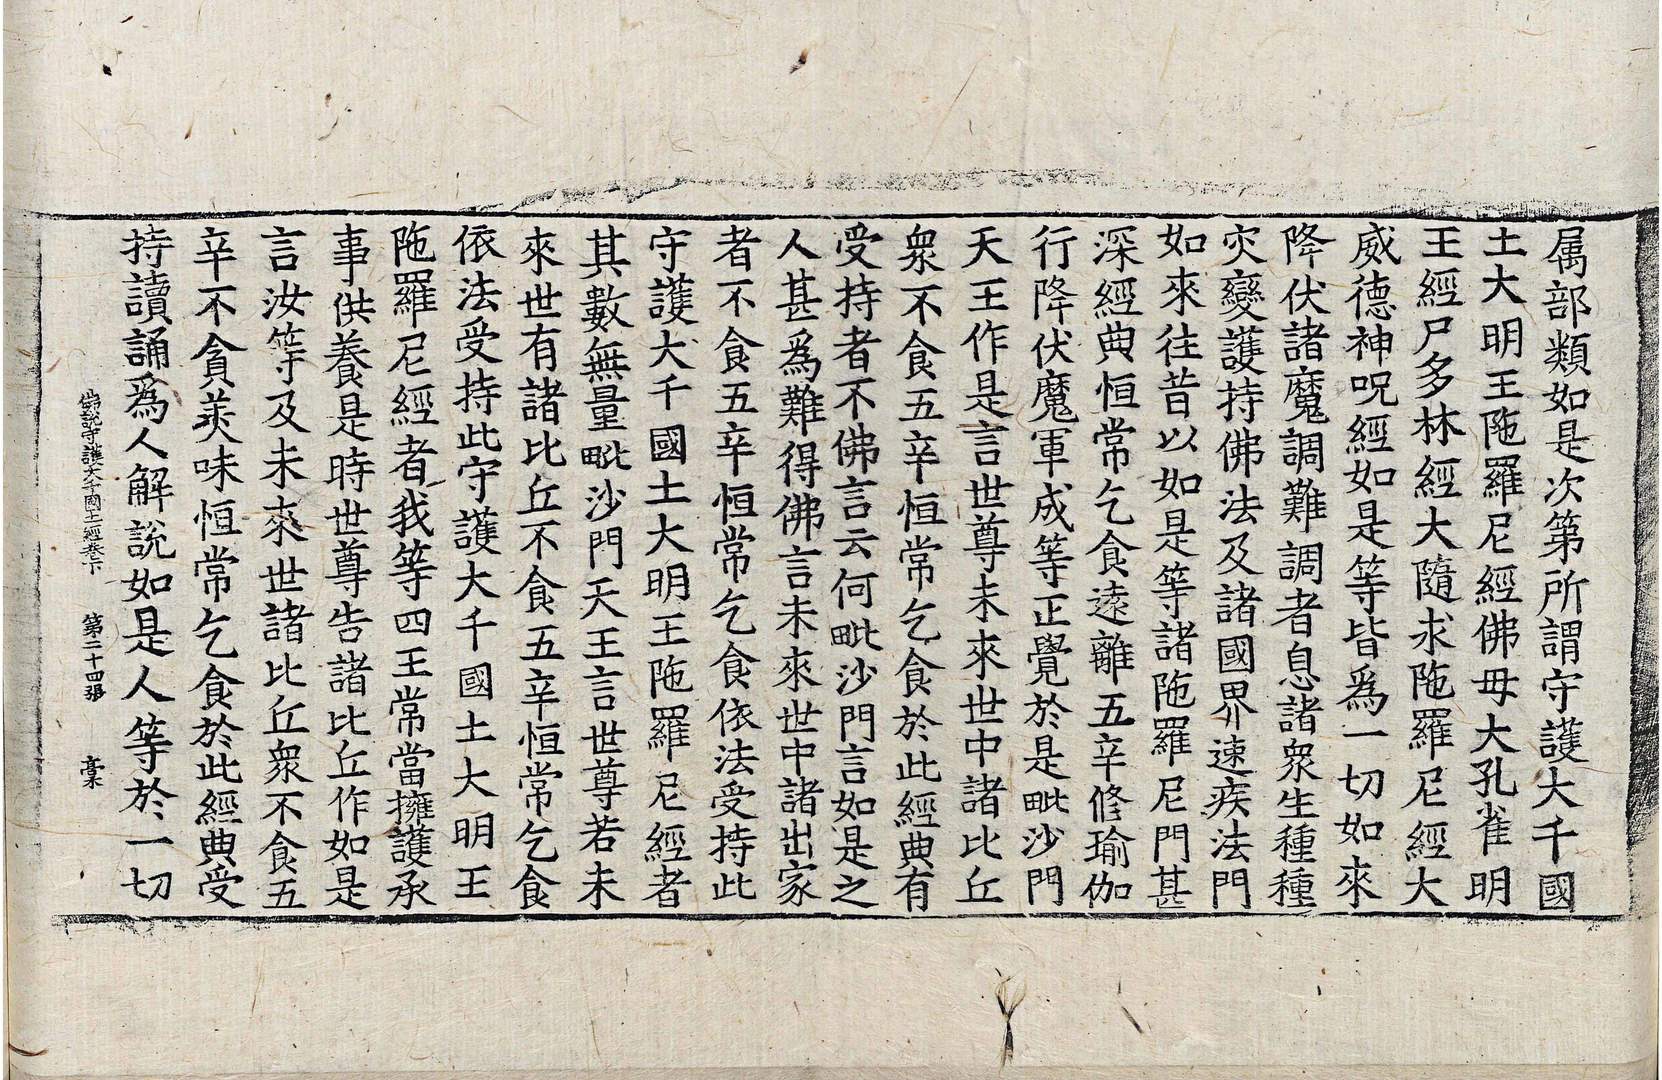 属部類如是次第所謂守護大千國
土大明王陁羅尼經佛母大孔雀明
王經尸多林經大隨求陁羅尼經大
威德神呪經如是等皆爲一切如來
降伏諸魔調難調者息諸衆生種種
灾變護持佛法及諸國界速疾法門
如來往昔以如是等諸陁羅尼門甚
深經典恒常乞食遠離五辛修瑜伽
行降伏魔軍成等正覺於是毗沙門
天王作是言世尊未來世中諸比丘
衆不食五辛恒常乞食於此經典有
受持者不佛言云何毗沙門言如是之
人甚爲難得佛言未來世中諸出家
者不食五辛恒常乞食依法受持此
守護大千國土大明王陁羅尼經者
其數無量毗沙門天王言世尊若未
來世有諸比丘不食五辛恒常乞食
依法受持此守護大千國土大明王
陁羅尼經者我等四王常當擁護承
事供養是時世尊告諸比丘作如是
言汝等及未來世諸比丘衆不食五
辛不貪美味恒常乞食於此經典受
持讀誦爲人解說如是人等於一切
佛說守護大千國土經卷下 第二十四張 槀